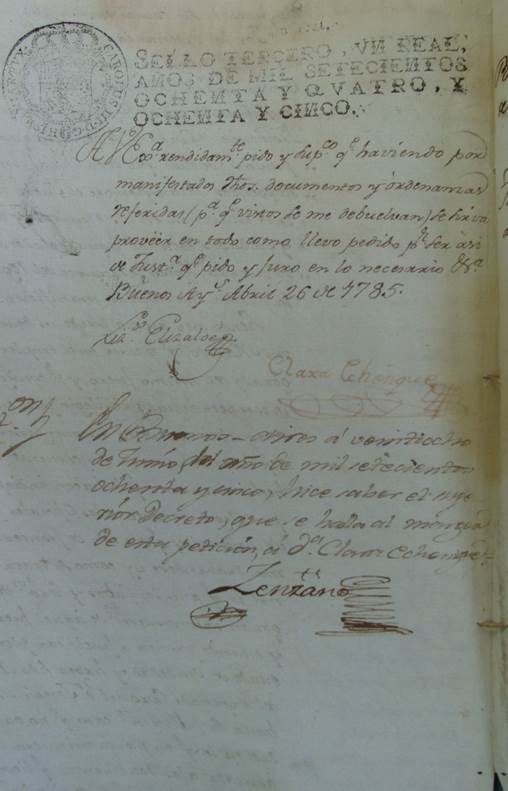 SELLO TERCERO, VN REAL,
AÑOS DE MIL SETECIENTOS
OCHENTA Y QVATRO, Y
OCHENTA Y CINCO.
A V. Exa. rendidamte. pido y supco. qe. haviendo por
manifestados dhos. documentos y órdenanzas
referidas (pa. qe. vistos se me debuelvan) se sirva
provéér en todo como llevo pedido pr. ser asi
de Justa. qe. pido y juro en lo necesario &a.
Buenos Ays. Abril 26 de 1785.
Elizalde
Clara Echenique
En Buenos-Aires á veintiocho
de Junio, del año de mil setecientos
ochenta y cinco, hice saber el supe
rior Decreto, que se halla al margen
de esta peticion, á Da. Clara Echenique=
Zenzano